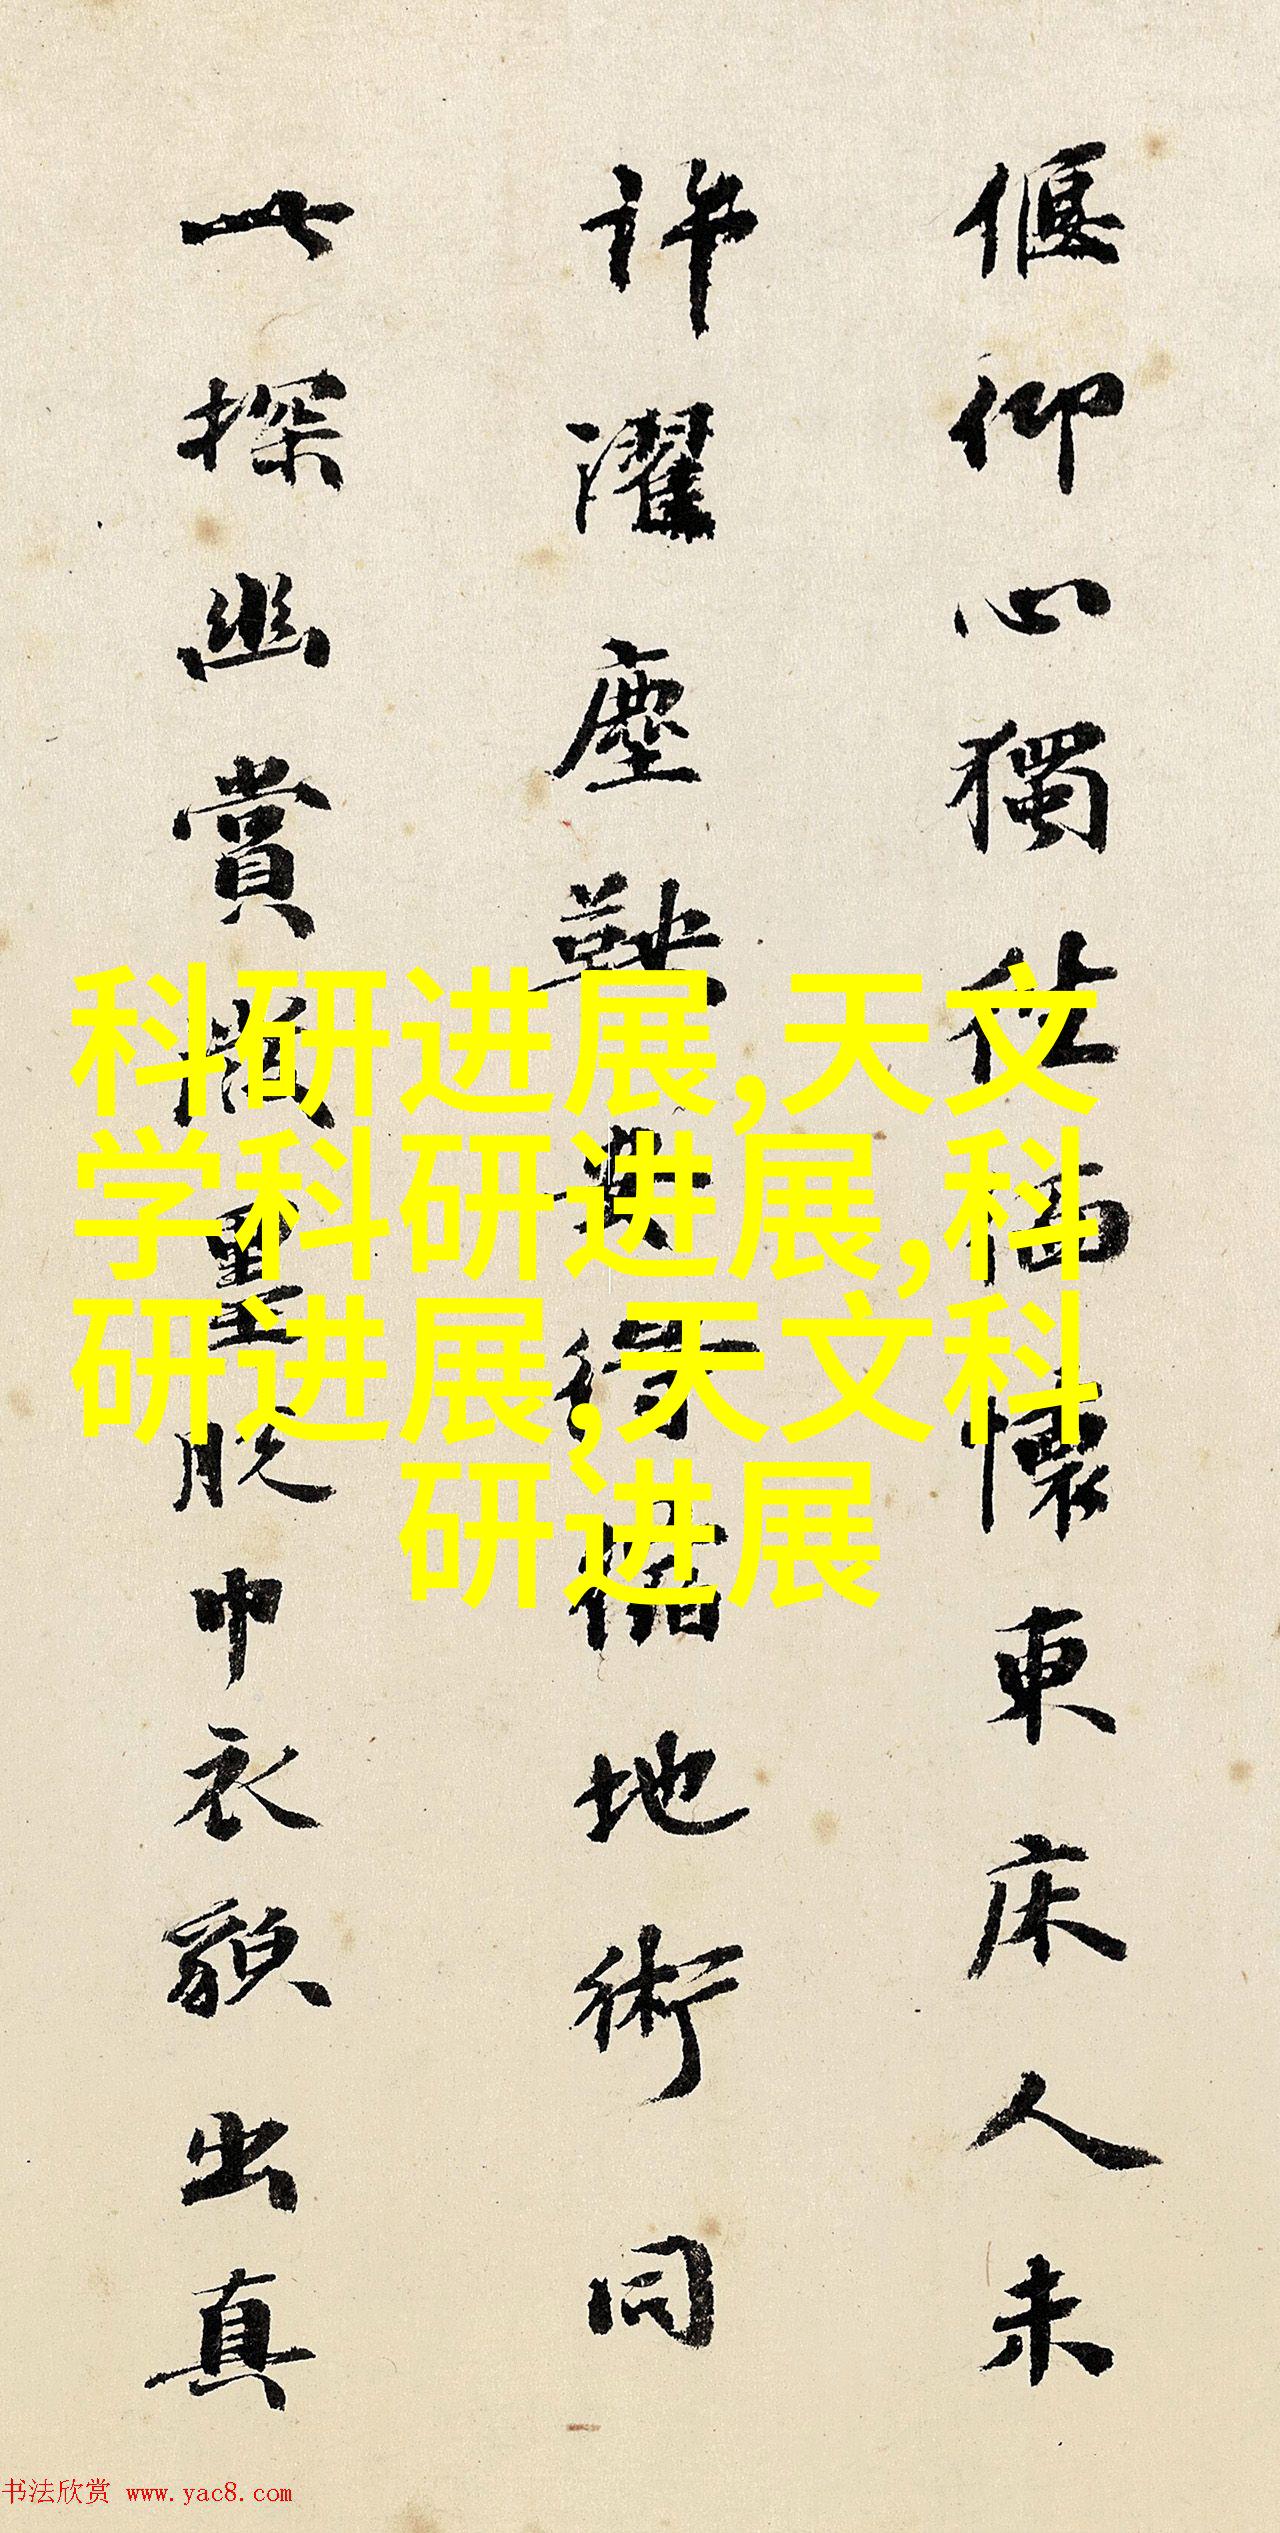 偃仰心獨
懷東床人未
許濯塵鞅
地術同
一探幽賞
脱巾衣顏出真
科研进展,天文
学科研进展,科
研进展,天文科
研进展
书法欣赏 www.yac8.com